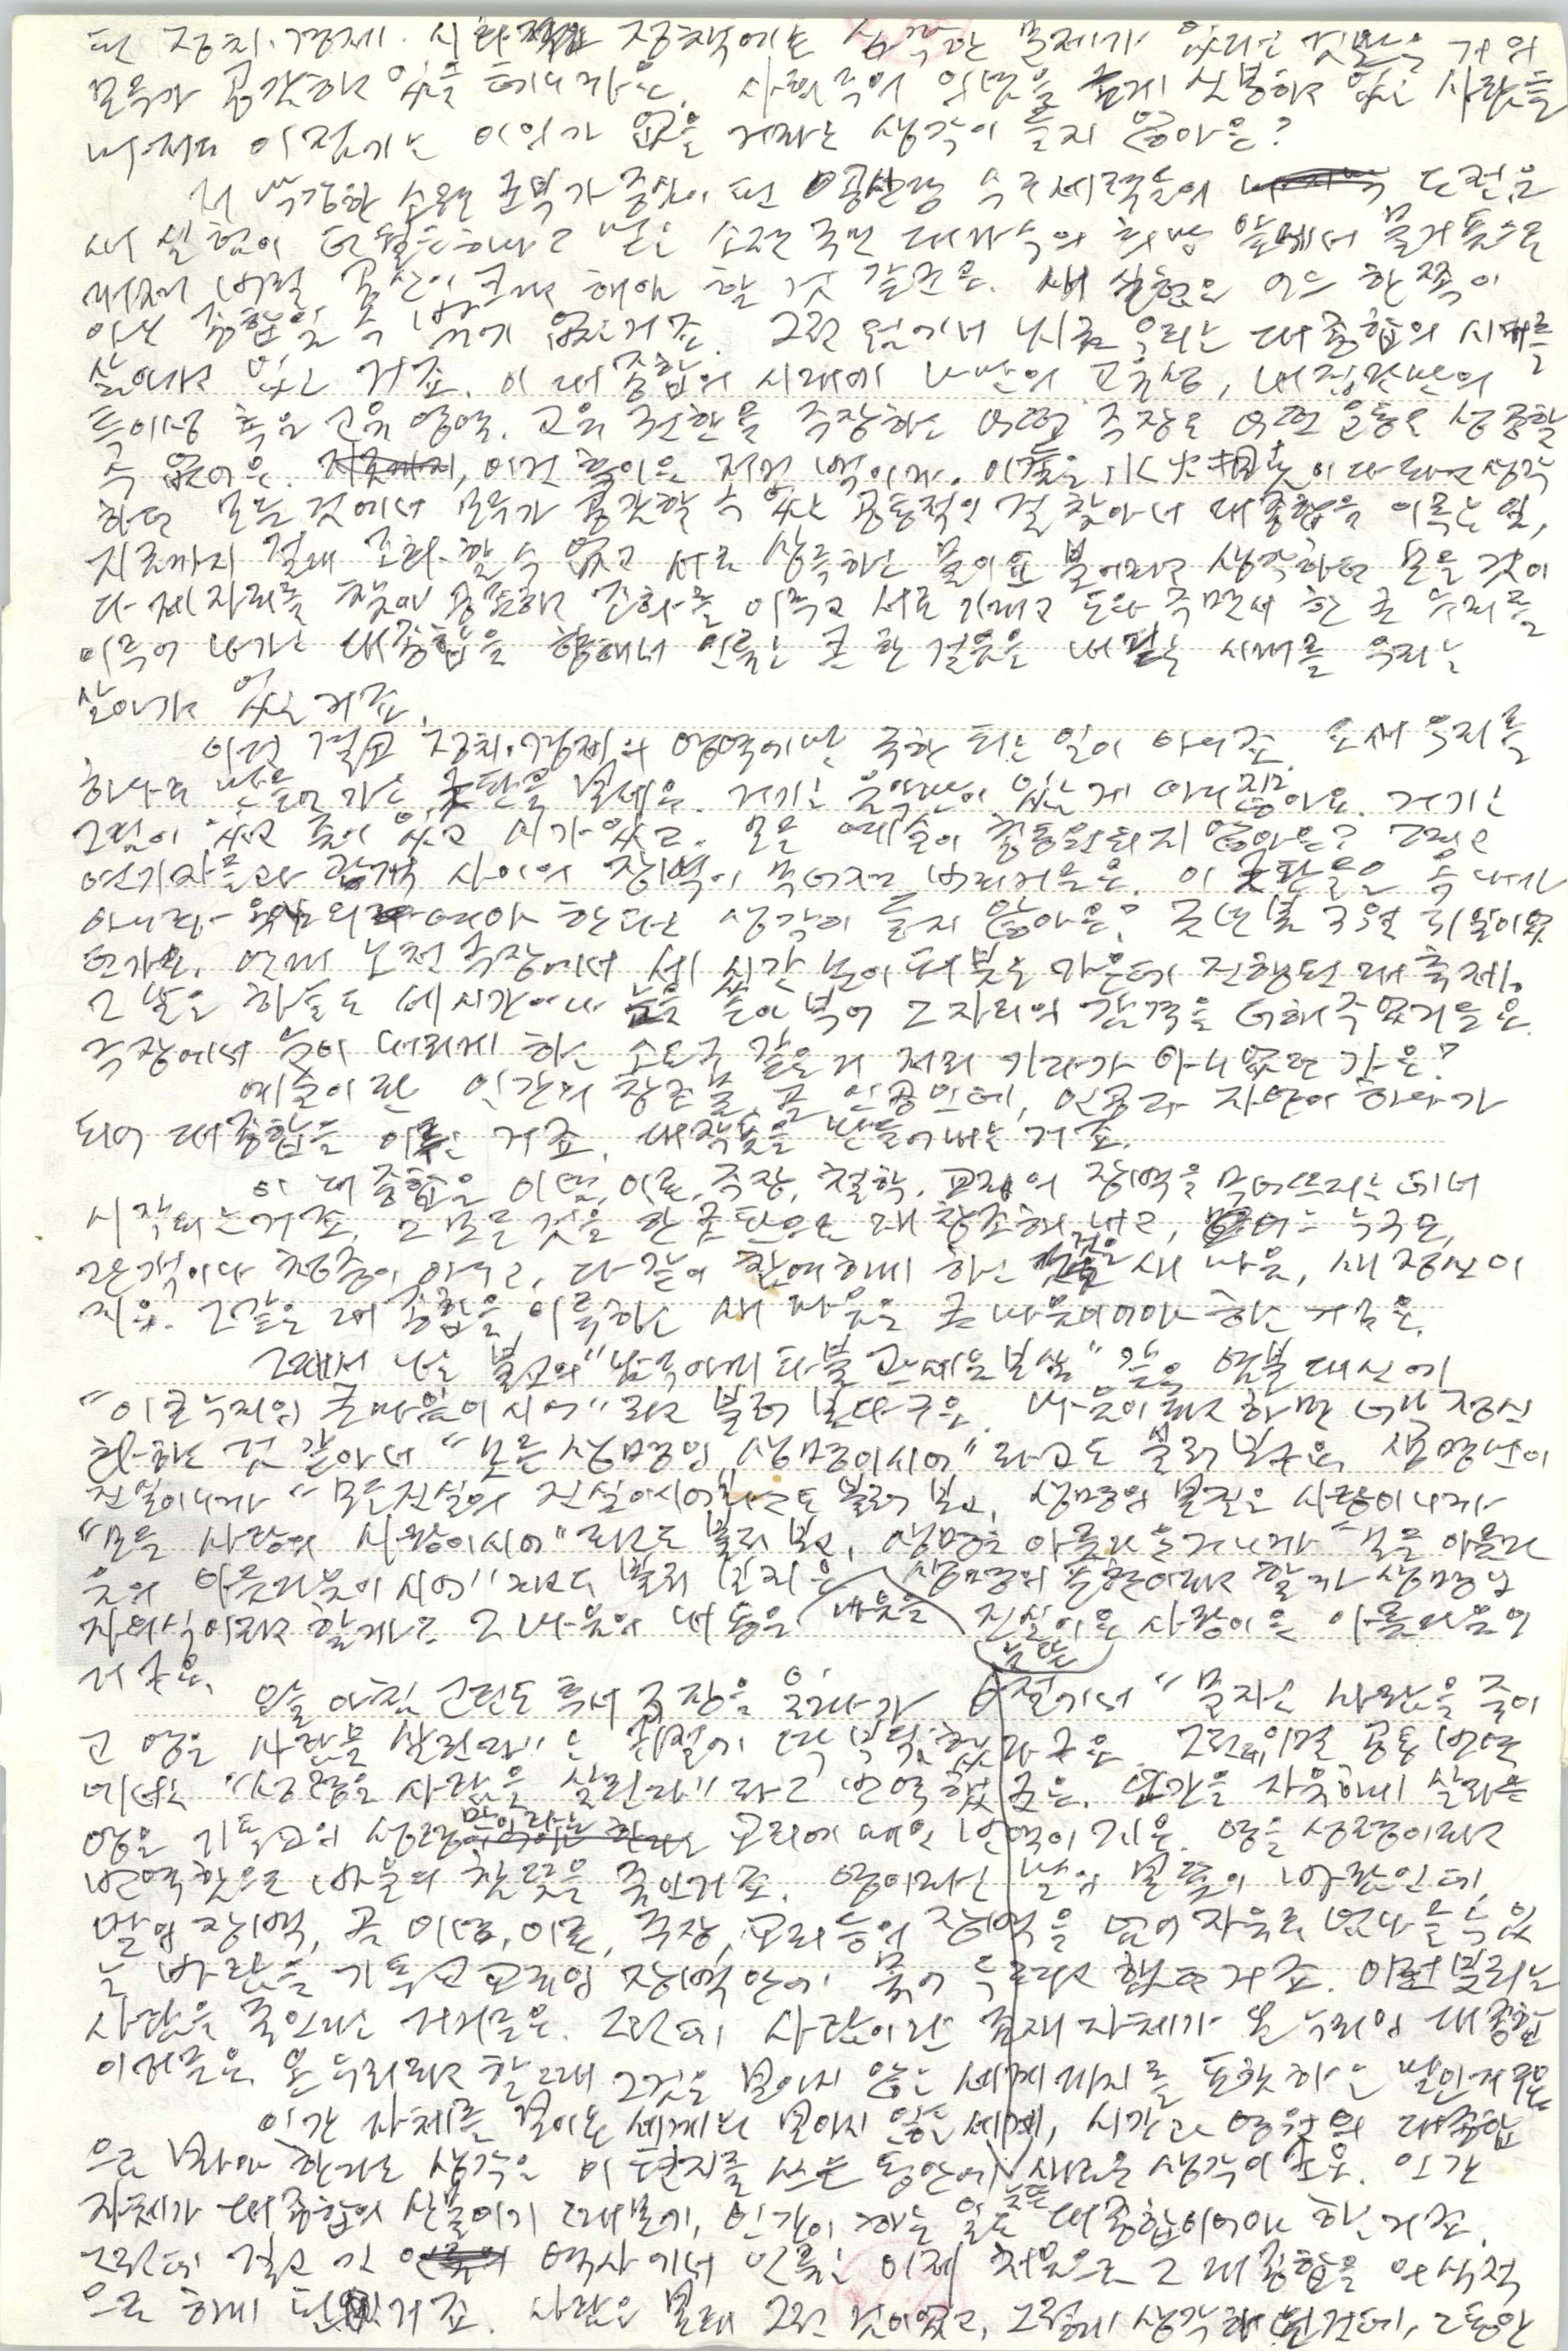 된 정치·경제·사회 정책에는 심각한 문제가 있다는 것만은 거의
모두가 공감하고 있을 테니까요. 사회주의 이념을 굳게 신봉하고 있는 사람들
마저도 이 점에는 이의가 없을 거라는 생각이 들지 않아요?
저 막강한 소련 군부가 중심이 된 공산당 수구세력들의 도전은
새 실험이 더 필요하다고 믿는 소련 국민 대다수의 희망 앞에서 물거품으로
꺼져 버릴 공산이 크다고 해야 할 것 같군요. 새 실험은 어느 한쪽이
아닌 종합일 수 밖에 없는 거죠. 그런 뜻에서 지금 우리는 대종합의 시대를
살아가고 있는 거죠. 이 대종합의 시대에 나만의 고유성, 내 집단만의
특이성 혹은 고유 영역, 고유 권한을 주장하는 어떤 주장도 어떤 운동도 성공할
수 없어요. 이건 흑이요 저건 백이다. 이 둘은 氷炭相克이다라고 생각
하던 모든 것에서 모두가 공감할 수 있는 공통적인 걸 찾아서 대종합을 이루는 일,
지금까지 절대 조화할 수 없고 서로 상극하는 물이요 불이라고 생각하던 모든 것이
다 제자리를 찾아 공존하고 진화를 이루고 서로 기대고 도와 주면서 한 큰 누리를
이루어 나가는 대종합을 향해서 인류는 큰 한 걸음을 내딛는 시대를 우리는
살아가고 있는 거죠.
이건 결코 정치·경제의 영역에만 국한 되는 일이 아니죠. 요새 우리를
하나로 만들어 가는 굿판을 보세요. 거기는 음악만이 있는 게 아니잖아요. 거기는
그림이 있고 춤이 있고 시가 있고. 모든 예술이 총동원되지 않아요? 그리고
연기자들과 관객 사이의 장벽이 무너져 버리거든요. 이 굿판들은 옥내가
아니라 옥외라야 한다는 생각이 들지 않아요? 금년 봄 3월 뒤 일이었
던가요. 연대 노천극장에서 세 시간 눈이 퍼붓는 가운데 진행된 대축제.
그 날은 하늘도 세 시간이나 눈을 쏟아 부어 그 자리의 감격을 더해 주었거든요.
극장에서 눈이 내리게 하는 소도구 같은 거 저리 가라가 아니었던가요?
예술이란 인간의 창조물 곧 인공인데, 인공과 자연이 하나가
되어 대종합을 이루는 거죠. 대작품을 만들어내는 거죠.
이 대종합은 이념, 이론, 주장, 철학, 교리의 장벽을 무너뜨리는 데서
시작되는 거죠. 그 모든 것을 한 굿판으로 재창조해 내고, 누구도
관객이나 청중이 아니고, 다 같이 참여하게 하는 것은 새 마음, 새 정신이
지요. 그 같은 대종합을 이룩하는 새 마음은 큰 마음이어야 하는 거구요.
그래서 나는 불교의 "나무아미타불 관세음보살" 같은 염불 대신에
"이 큰 누리의 큰 마음이시여"라고 불러 보다구요. 마음이라고 하면 너무 정신
화하는 것 같아서 "모든 생명의 생명이시여"라고도 불러 보구요. 생명만이
진실이니까 "모든 진실의 진실이시여"라고도 불러 보고, 생명의 본질은 사랑이니까
"모든 사랑의 사랑이시여"라고도 불러 보고, 생명은 아름다운 거니까 "모든 아름다
움의 아름다움이시여"라고도 불러 보지요. 마음은 생명의 표현이라고 할까 생명의
자의식이라고 할까 그 마음의 내용은 진실이요 사랑이요 아름다움인
거구요.
오늘 아침 고린도 후서 3장을 읽다가 6절에서 "문자는 사람을 죽이
고 영은 사람을 살린다"는 구절에 딱 부딪혔다구요. 그런데 이걸 공동번역
에서는 "성령은 사람을 살린다"라고 번역했군요. 인간을 자유하게 살리는
영을 기독교의 성령만이라는 교리에 매인 번역이 거요. 영을 성령이라고
번역함으로 바울의 참 뜻을 죽인 거죠. 영이라는 말의 본 뜻이 바람인데,
말의 장벽, 곧 이념, 이론, 주장, 교리 등의 장벽을 넘어 자유로 넘나들 수 있
는 바람을 기독교 교리의 장벽 안에 묶어 두려고 했던 거죠. 이런 교리는
사람을 죽인다는 거거든요. 그런데 사람이란 존재 자체가 온 누리의 대종합
이거든요. 온 누리라고 할 때 그것은 보이지 않는 세계까지를 포함하는 말인 거구요.
인간 자체를 보이는 세계와 보이지 않는 세계, 시간과 영원의 대종합
으로 보아야 한다는 생각은 이 편지를 쓰는 동안에 새로운 생각이군요. 인간
자체가 대종합의 산물이기 때문에, 인간이 하는 일은 모두 대종합이어야 하는 거죠.
그런데 결코 긴 역사에서 인류는 이제 처음으로 그 대종합을 의식적
으로 하게 된 거죠. 사람은 본래 그런 것이었고, 그렇게 생각해 왔던 건데, 그동안